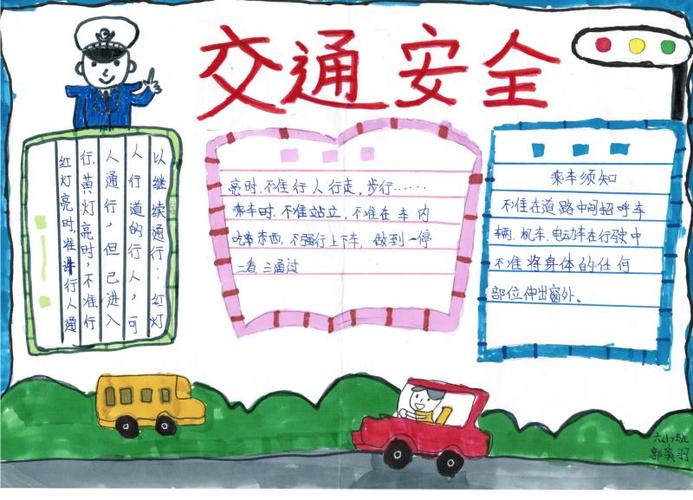 交通安全
红灯亮时,准许行人通
行,黄灯亮时,不准行
人通行,但已进入
人行道的行人,可
以继续通行;红灯
亮时.不准行人行走,步行……
乘车时.不准站立,不准在车内
吃东西,不强行上下车,做到一停
二看三通过
乘车须知
不准在道路中间招呼车
辆.机车.电动车在行驶中
不准将身体的任何
部位伸出窗外。